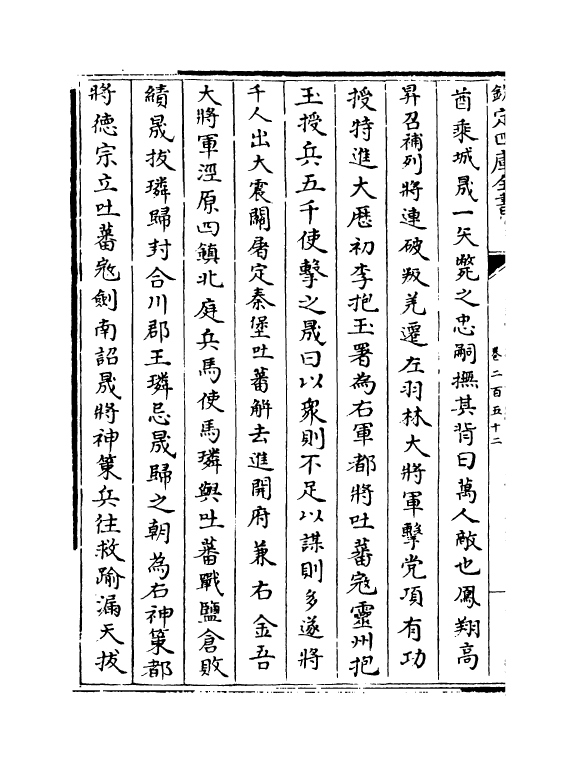 欽定四庫全書
卷二百五十二
酋乘城晟一矢斃之忠嗣撫其背曰萬人敵也鳳翔高
昇召補列將連破叛羌遷左羽林大將軍擊党項有功
授特進大厯初李抱玉署為右軍都將吐蕃寇靈州抱
玉授兵五千使擊之晟曰以衆則不足以謀則多遂將
千人出大震關屠定秦堡吐蕃解去進開府兼右金吾
大將軍涇原四鎮北庭兵馬使馬璘與吐蕃戰鹽倉敗
績晟拔璘歸封合川郡王璘忌晟歸之朝為右神策都
將徳宗立吐蕃寇劍南詔晟將神策兵往救踰漏天拔